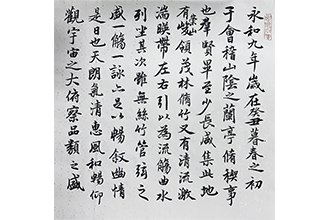 永和九年歲在癸丑暮春之初
于會稽山陰之蘭亭脩稧事
也群賢畢至少長咸集此地
有崇山峻領茂林脩竹又有清流激
湍暎帶左右引以為流觴曲水
列坐其次雖無絲竹管弦之
盛一觴一詠亦足以暢敘幽情
是日也天朗氣清惠風和暢仰
觀宇宙之大俯察品類之盛